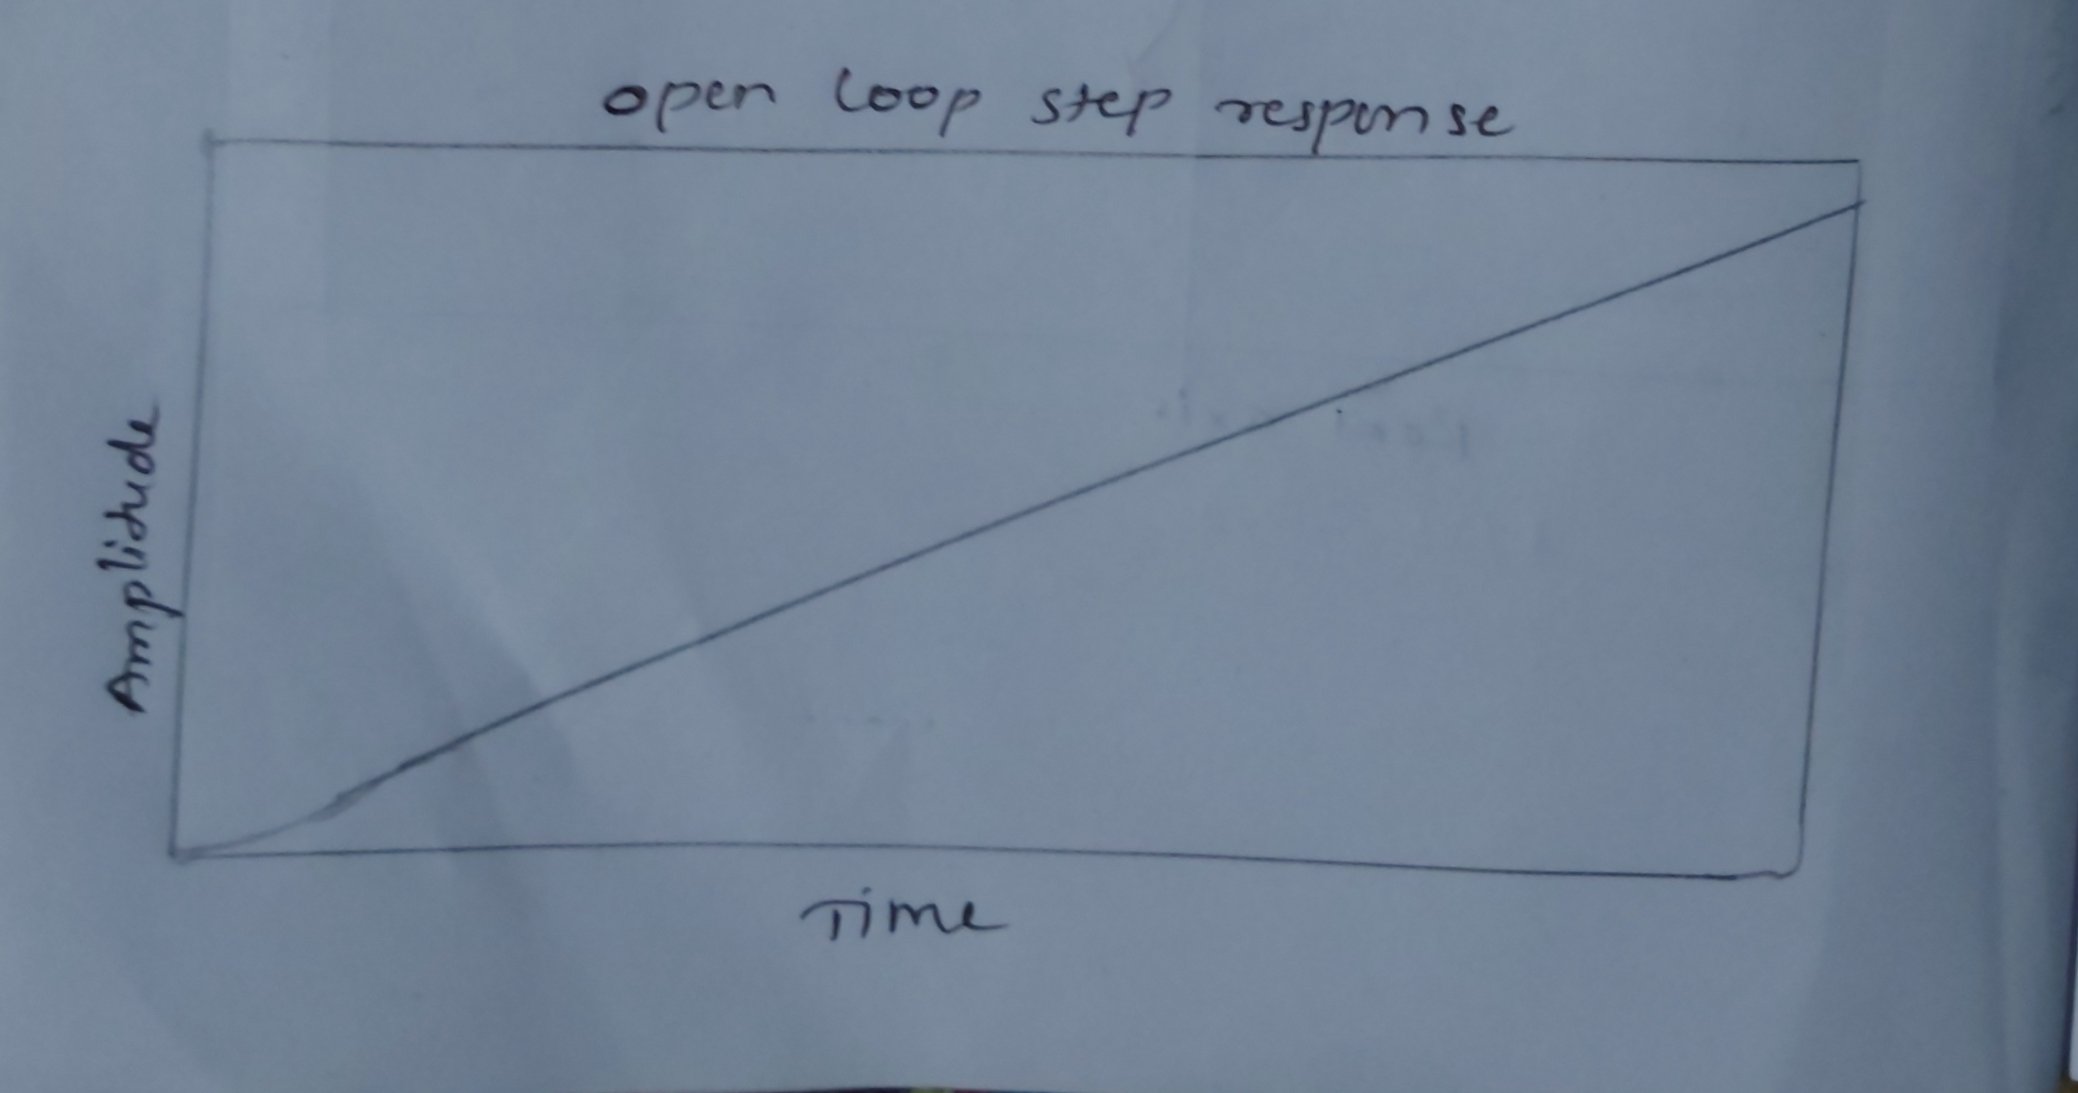 open loop step response
Amplitude
Time